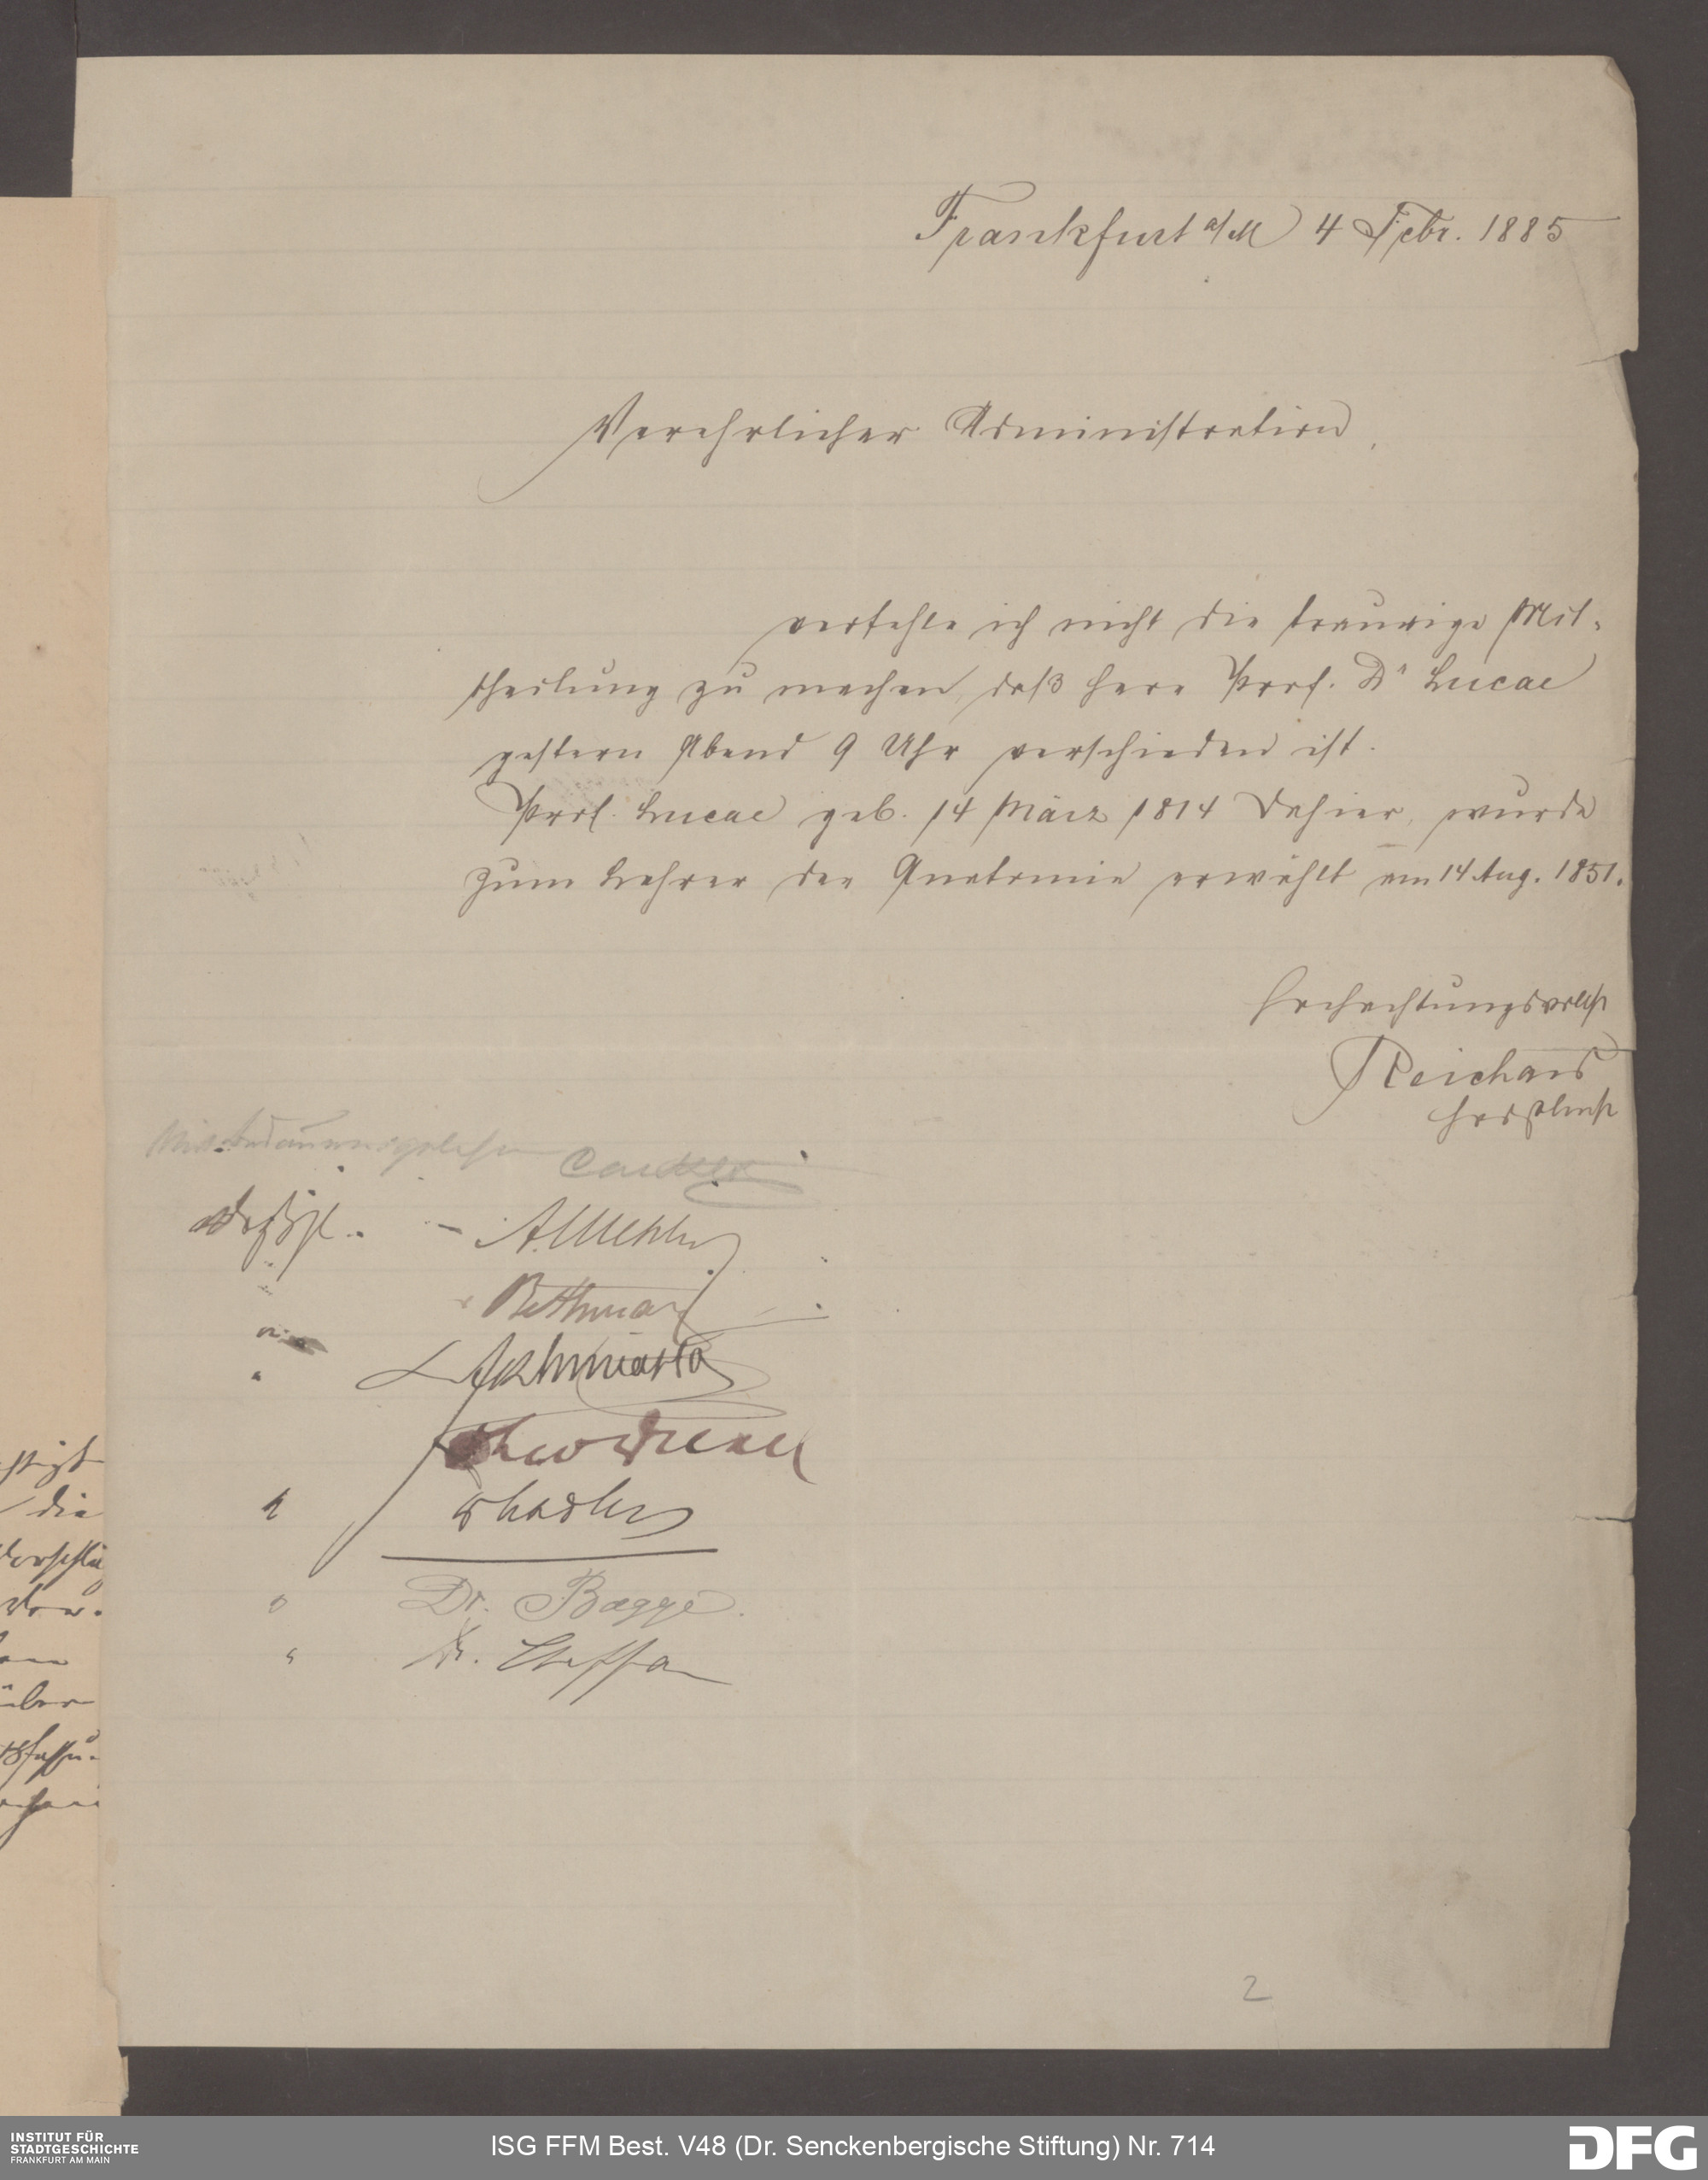 Frankfurt a/M 4 Febr. 1885
Verehrlicher Administration,
verfehle ich nicht die traurige Mit-
theilung zu machen, daß Herr Prof. Dr Lucae
gestern Abend 9 Uhr verschieden ist.
Prof. Lucae geb. 14 März 1814 dahier, wurde
zum Lehrer der Anatomie erwählt am 14 Aug. 1851.
Hochachtungsvollst
Reichard
Mit
desgl. - A.
Bethmann
Theo
"
" Dr. Bagge.
" Dr. Steffan
2
stigt
die
über
INSTITUT FÜR
STADTGESCHICHTE
FRANKFURT AM MAIN
ISG FFM Best. V48 (Dr. Senckenbergische Stiftung) Nr. 714
DFG